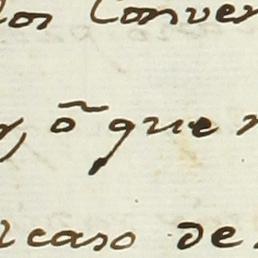 los Conver
, õ que
caso de